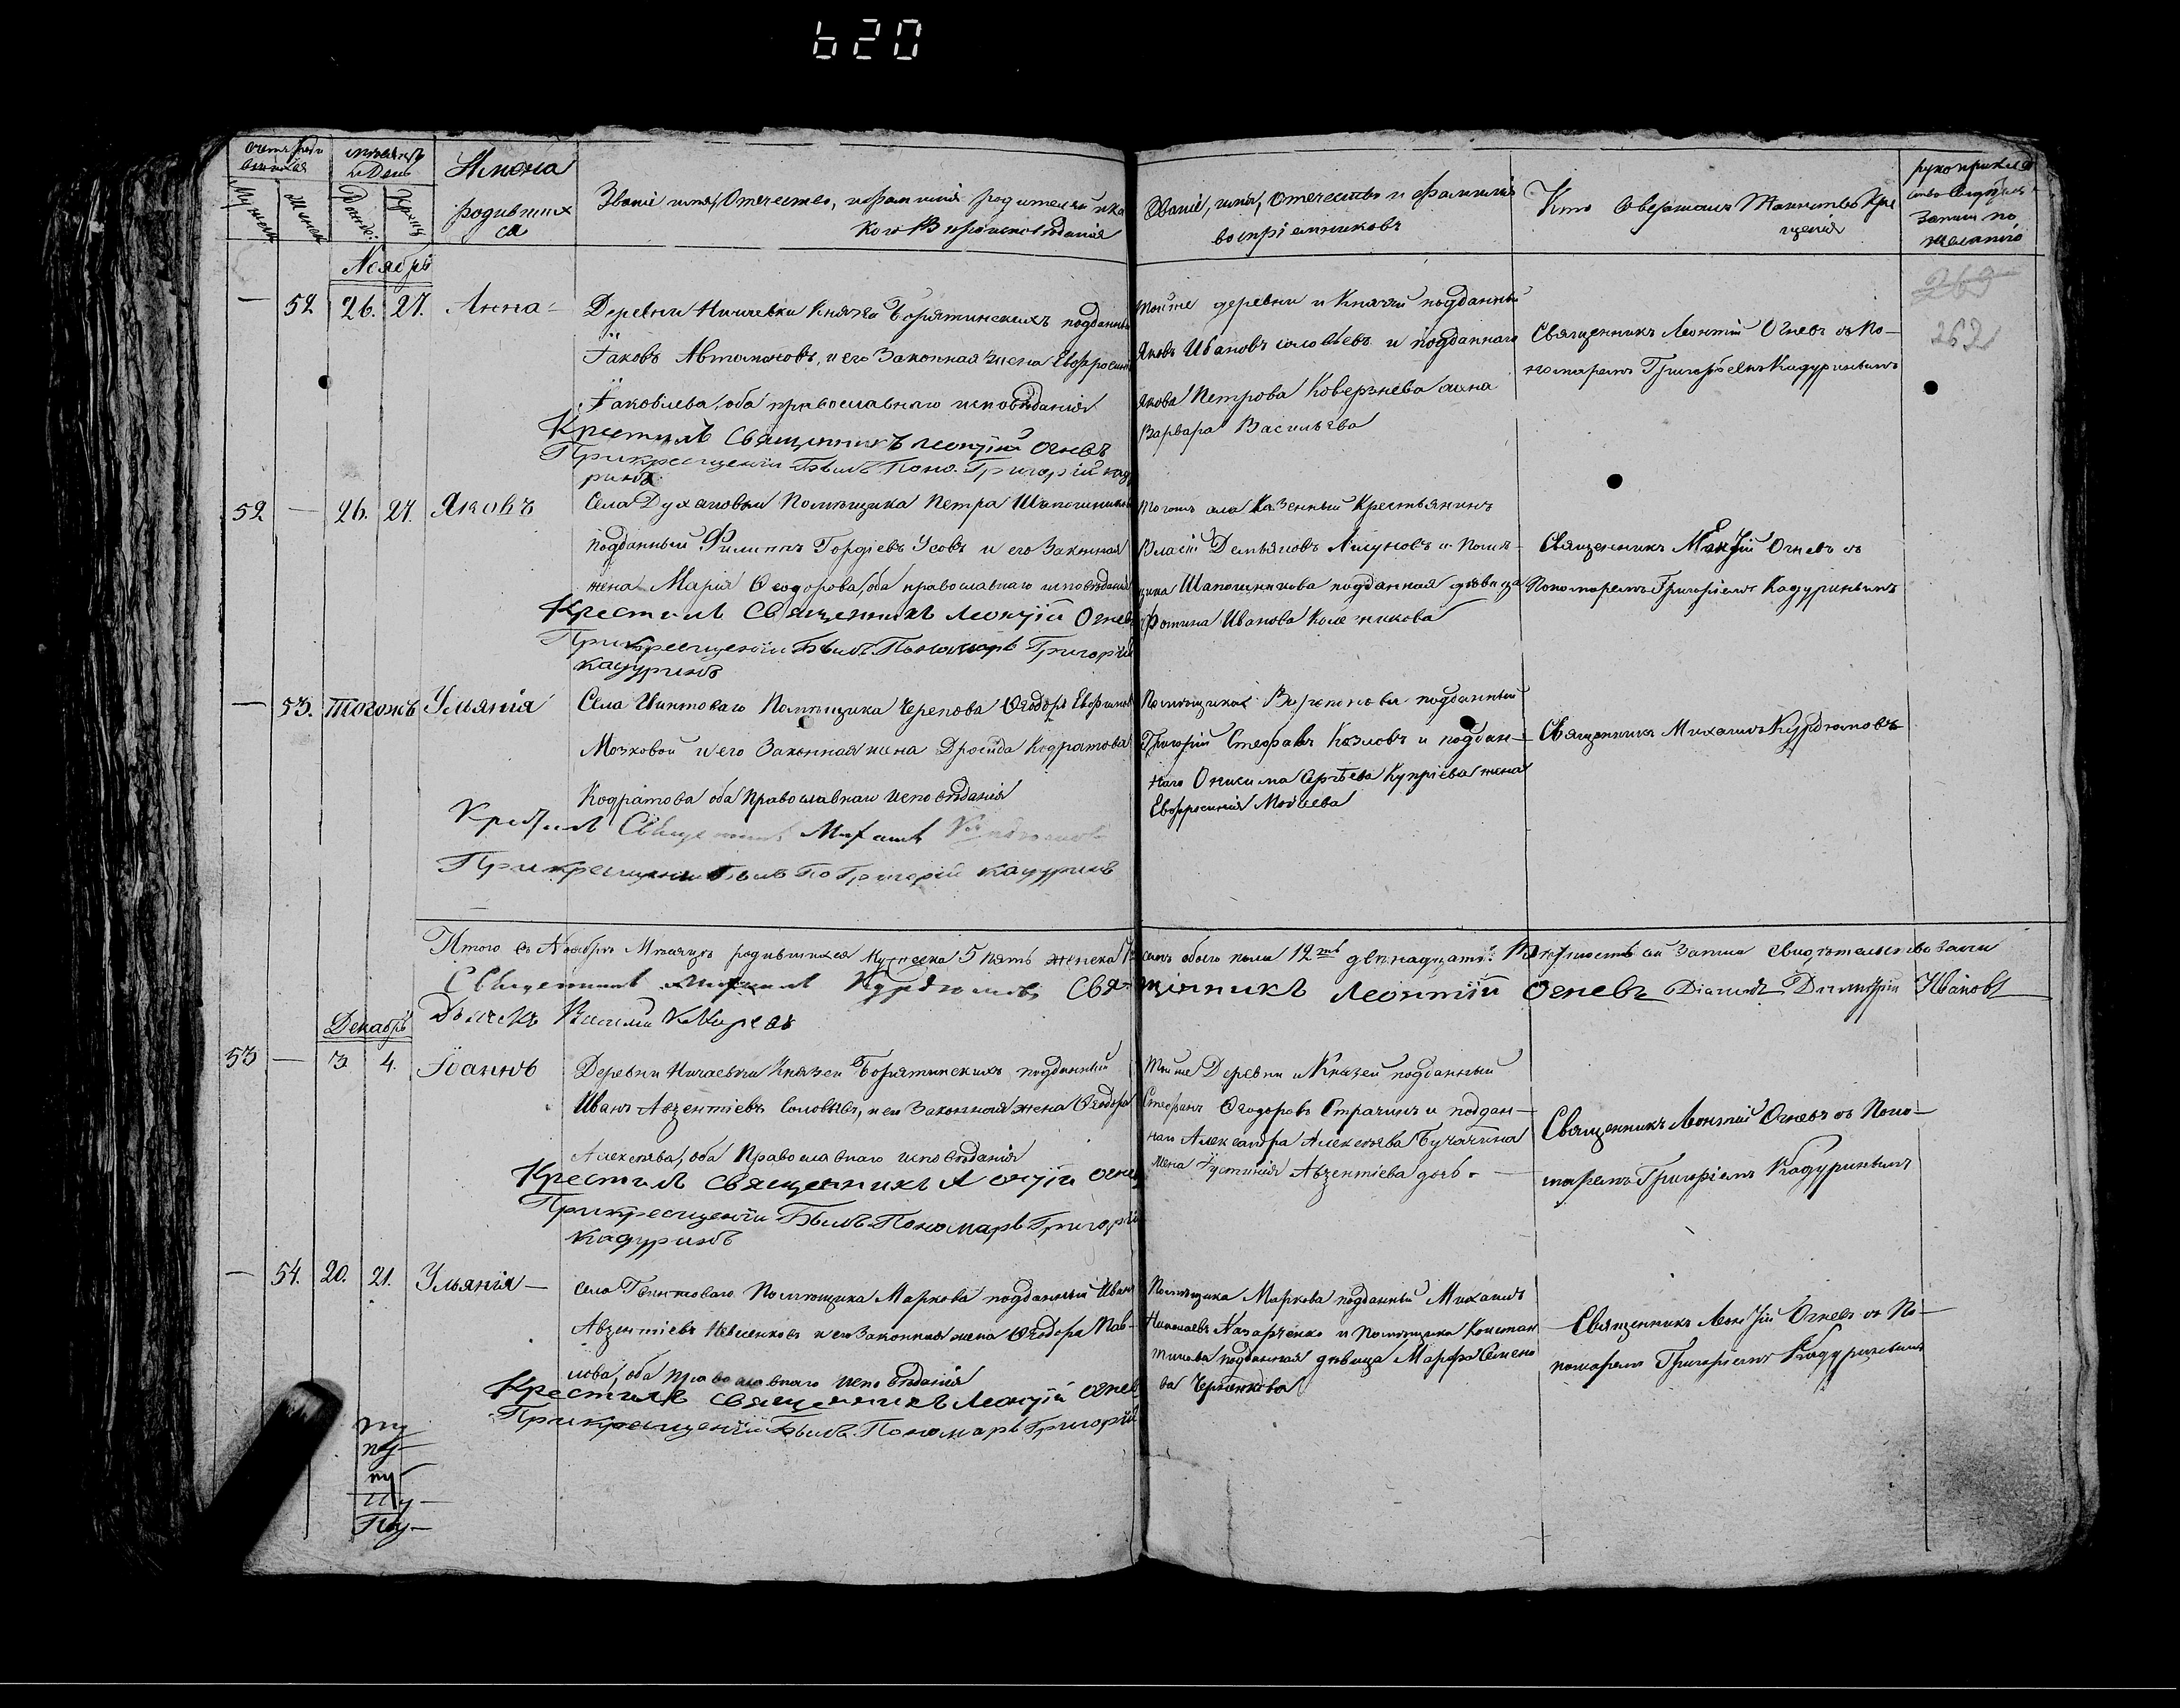 620
Счетъ родившихся
Мужеска
Женска
Мѣсяцъ и День
Рожде:
Крещ
Имена родившихся
Званіе имя, Отечество, и фамилія родителей и ка
кого Вѣроисповѣданія
Званіе, имя, Отечество и фамилія
воспріемниковъ
Кто совершалъ Таинство Кре
щенія
рукоприклад
ство
записи по
желанію
Ноябрь
269
263
— 52 26. 27. Анна
Деревни Ничаевки Князей Борятинскихъ подданный
Іаковъ Автономовъ, и его Законная жена Евфросинія
Іаковлева, оба православнаго исповѣданія
Крестилъ Священникъ Леонтій Огневъ
Прикрещеніи Былъ Поно. Григорій каду
ринъ
Тойже деревни и Князей подданный
Яковъ Ивановъ Соловьевъ и подданнаго
Якова Петрова Коверзнева жена
Варвара Васильева
Священникъ Леонтій Огневъ съ По—
номаремъ Григоріемъ Кадуринымъ
52 — 26. 27. Яковъ
Села Духановки Помѣщика Петра Шапошникова
подданный Филиппъ Гордѣевъ Усовъ и его Законная
жена Марія Ѳеодорова, оба православнаго исповѣданія
Крестилъ Священникъ Леонтій Огневъ
Прикрещеніи Былъ Пономарь Григорій
кадуринъ
Тогожъ села Казенный Крестьянинъ
Власій Демьяновъ Лисуновъ и Помѣ-
щика Шапошникова подданная дѣвица
Фотина Иванова
Священникъ Леонтій Огневъ съ
Пономаремъ Григоріемъ Кадуринымъ
— 53. Тогожъ Ульянія
Села Помѣщика Черепова Ѳеодоръ
и его Законная жена Кодратова
Кодратова оба Православнаго исповѣданія
Крестилъ Священникъ Михаилъ Курдюмовъ
Прикрещеніи Былъ По Григорій кадуринъ
Помѣщика подданный
Григорій Стефановъ Козловъ и поддан—
наго Онисима Сергѣева Купріева жена
Евфросинія Моисеева
Священникъ Михаилъ Курдюмовъ
Итого въ Ноябрѣ Мѣсяцѣ родившихся Мужеска 5 пять женска 7 семь обоего пола 12ть двѣнадцать. Вѣрность сей Записи свидѣтельствовали
Священникъ Михаилъ Курдюмовъ Священникъ Леонтій Огневъ Діаконъ Димитрій Ивановъ
Дьячекъ Василій
Декабрь
53 — 3 4. Іоаннъ
Деревни Ничаевки Князей Борятинскихъ подданный
Иванъ Авзентіевъ Соловьевъ, и его Законная жена Ѳеодора
Алексѣева, оба Православнаго исповѣданія
Крестилъ Священникъ Леонтій Огневъ
Прикрещеніи Былъ Пономарь Григорій
Кадуринъ
Тойже Деревни и Князей подданный
Стефанъ Ѳеодоровъ Страчинъ и поддан—
наго Александра Алексѣева Бучачина
жена Іустинія Авзентіева дочь.
Священникъ Леонтій Огневъ съ Поно—
маремъ Григоріемъ Кадуринымъ
— 54. 20. 21. Ульянія —
Села Помѣщика Маркова подданный Иванъ
Авзентіевъ и его Законная жена Ѳеодора Пав—
лова, оба Православнаго исповѣданія
Крестилъ Священникъ Леонтій Огневъ
Прикрещеніи Былъ Пономарь Григорій
Помѣщика Маркова подданный Михаилъ
Николаевъ Назарченко и Помѣщика Констан
тинова подданная дѣвица Марфа Семено
ва
Священникъ Леонтій Огневъ съ По—
номаремъ Григоріемъ Кадуринымъ